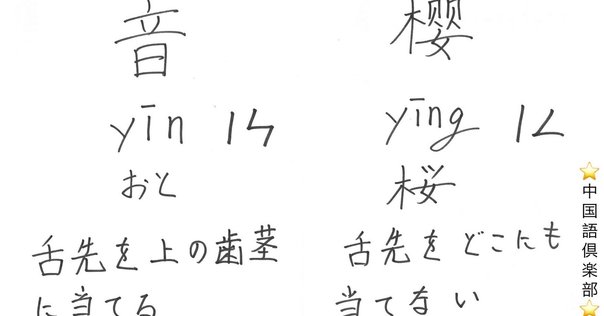 音
yīn 1ㄣ
おと
舌先を上の歯茎
に当てる
樱
yīng 1ㄥ
桜
舌先をどこにも
当てない
⭐中国語倶楽部⭐